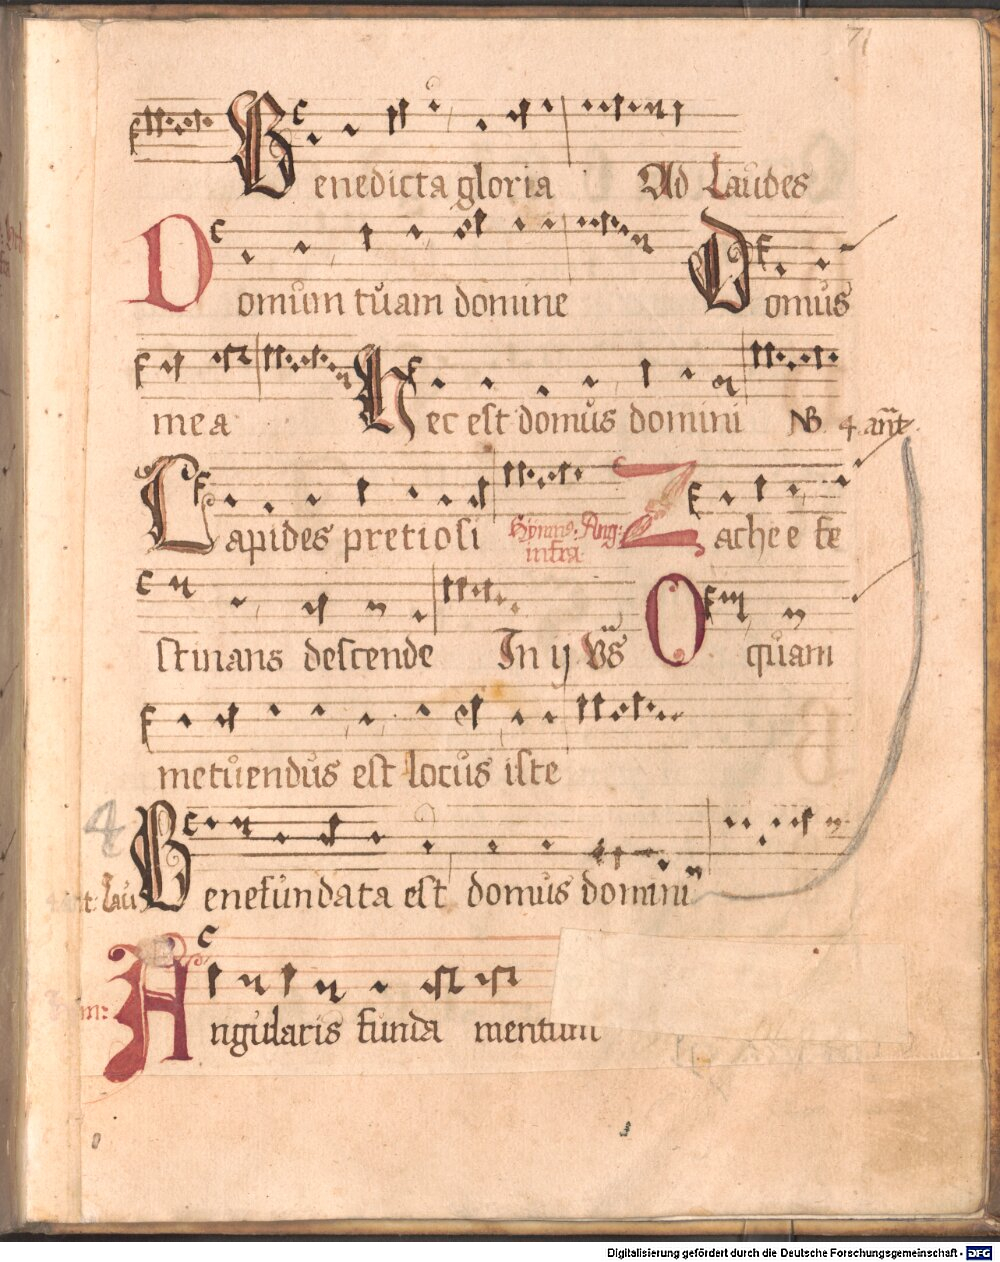 71
Benedicta gloria Ad Laudes
Domum tuam domine Domus
mea Hec est domus domini NB. 4. ant
Lapides pretiosi Hymnꝯ. Ang: Zachee fe
infra
stinans descende In ij Vs̄ O quam
metuendus est locus iste
4
Benefundata est domus domini
Angularis funda mentum
Digitalisierung gefördert durch die Deutsche Forschungsgemeinschaft - DFG